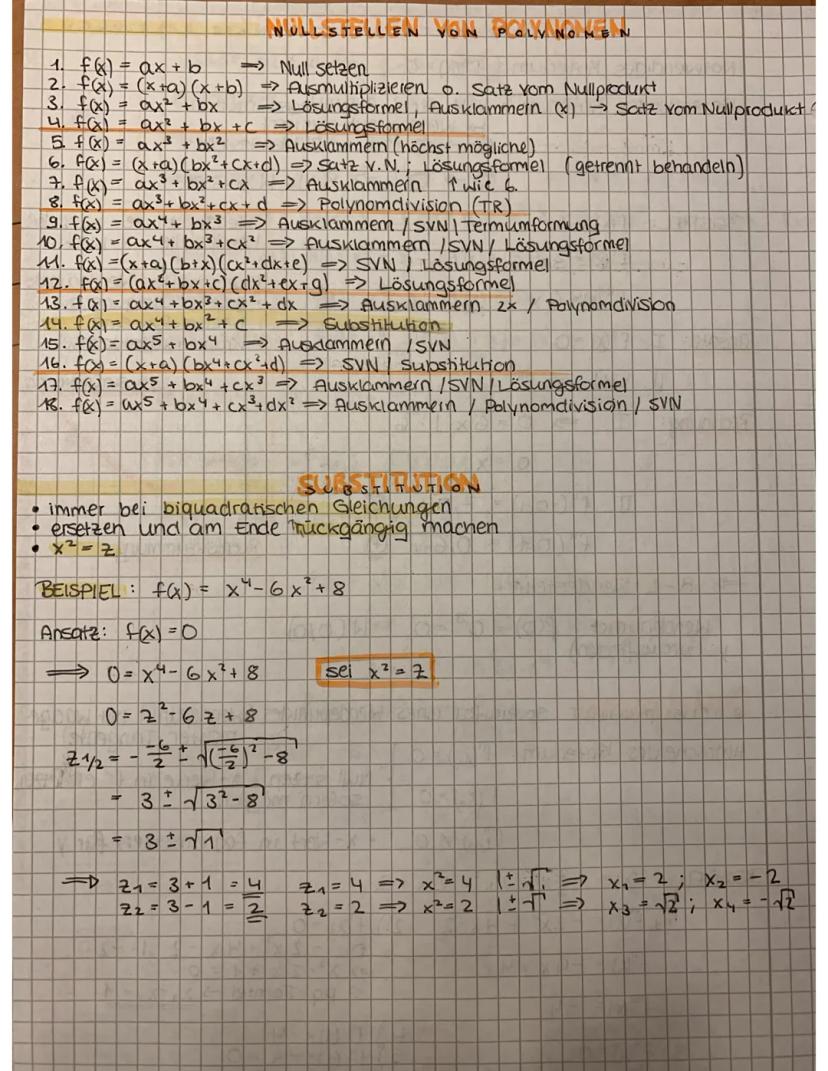 NULLSTELLEN VON POLYNOMEN
1. f(x) = ax + b ⇒ Null setzen
2. f(x) = (x+a)(x+b) ⇒ Ausmultiplizieren o. Satz vom Nullprodukt
3. f(x) = ax² + bx ⇒ Lösungsformel, Ausklammern (x) → Satz vom Nullprodukt
4. f(x) = ax² + bx + c ⇒ Lösungsformel
5. f(x) = ax³ + bx² ⇒ Ausklammern (höchst mögliche)
6. f(x) = (x+a)(bx²+cx+d) ⇒ Satz v. N.; Lösungsformel (getrennt behandeln)
7. f(x) = ax³ + bx² + cx ⇒ Ausklammern ↑ wie 6.
8. f(x) = ax³ + bx² + cx + d ⇒ Polynomdivision (TR)
9. f(x) = ax⁴ + bx³ ⇒ Ausklammern / SVN / Termumformung
10. f(x) = ax⁴ + bx³ + cx² ⇒ Ausklammern / SVN / Lösungsformel
11. f(x) = (x+a)(b+x)(cx²+dx+e) ⇒ SVN / Lösungsformel
12. f(x) = (ax²+bx+c)(dx²+ex+g) ⇒ Lösungsformel
13. f(x) = ax⁴ + bx³ + cx² + dx ⇒ Ausklammern 2x / Polynomdivision
14. f(x) = ax⁴ + bx² + c ⇒ Substitution
15. f(x) = ax⁵ + bx⁴ ⇒ Ausklammern / SVN
16. f(x) = (x+a)(bx⁴+cx²+d) ⇒ SVN / Substitution
17. f(x) = ax⁵ + bx⁴ + cx³ ⇒ Ausklammern / SVN / Lösungsformel
18. f(x) = ax⁵ + bx⁴ + cx³ + dx² ⇒ Ausklammern / Polynomdivision / SVN
SUBSTITUTION
• immer bei biquadratischen Gleichungen
• ersetzen und am Ende rückgängig machen
• x² = z
BEISPIEL: f(x) = x⁴ - 6x² + 8
Ansatz: f(x) = 0
⇒ 0 = x⁴ - 6x² + 8 sei x² = z
0 = z² - 6z + 8
z1/2 = - -6/2 ± √((-6/2)² - 8)
= 3 ± √(3² - 8)
= 3 ± √1
⇒ z₁ = 3 + 1 = 4 z₁ = 4 ⇒ x² = 4 |±√ ⇒ x₁ = 2 ; x₂ = -2
z₂ = 3 - 1 = 2 z₂ = 2 ⇒ x² = 2 |±√ ⇒ x₃ = √2 ; x₄ = -√2